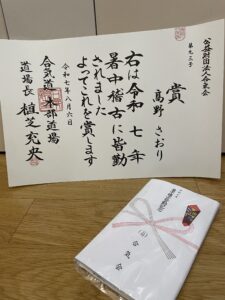 公益財団法人合気会
第九三号
賞
高野 さおり
右は令和 七 年
暑中稽古に皆勤
されました
よってこれを賞します
令和七年八月六日
合気道 本部道場
道場長 植芝充央